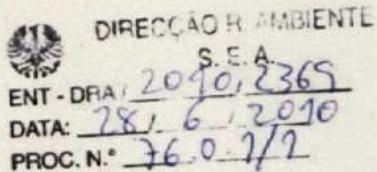 DIRECÇÃO R. AMBIENTE
S. E. A.
ENT - DRA / 2010, 2365
DATA: 28 / 6 / 2010
PROC. N.° 76.0.1/1